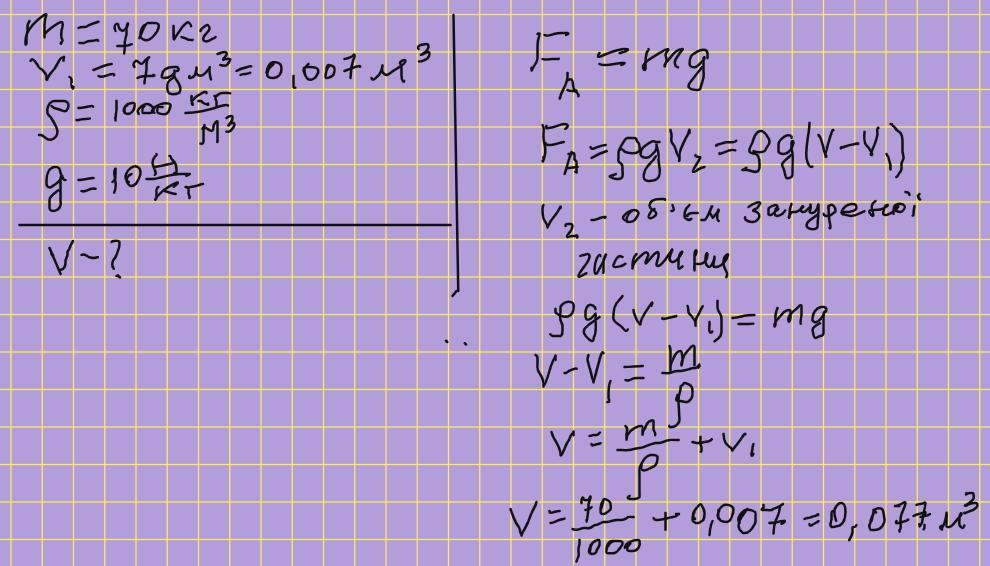 m = 70 кг
V₁ = 7 дм³ = 0,007 м³
ρ = 1000 кг/м³
g = 10 Н/кг
V - ?
F_A = mg
F_A = ρgV₂ = ρg(V-V₁)
V₂ - об'єм зануреної
частини
ρg(V-V₁) = mg
V-V₁ = m/ρ
V = m/ρ + V₁
V = 70/1000 + 0,007 = 0,077 м³